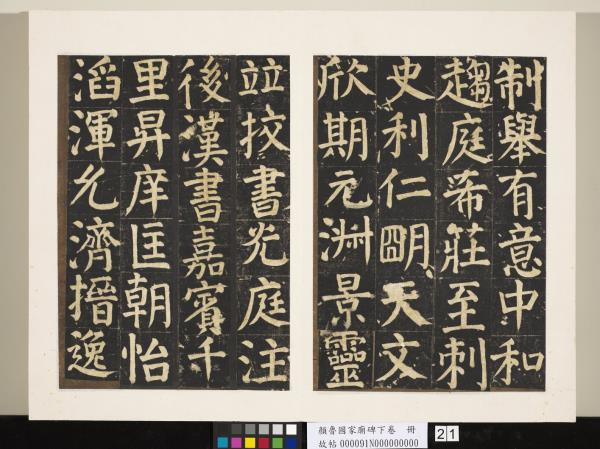 制舉有意中和
趨庭希莊至刺
史利仁朙天文
欣期元景靈
竝挍書光庭注
後漢書嘉賓千
里昇庠匡朝怡
滔渾允濟搢逸
顏魯國家廟碑下卷 冊
故帖 000091N000000000
21